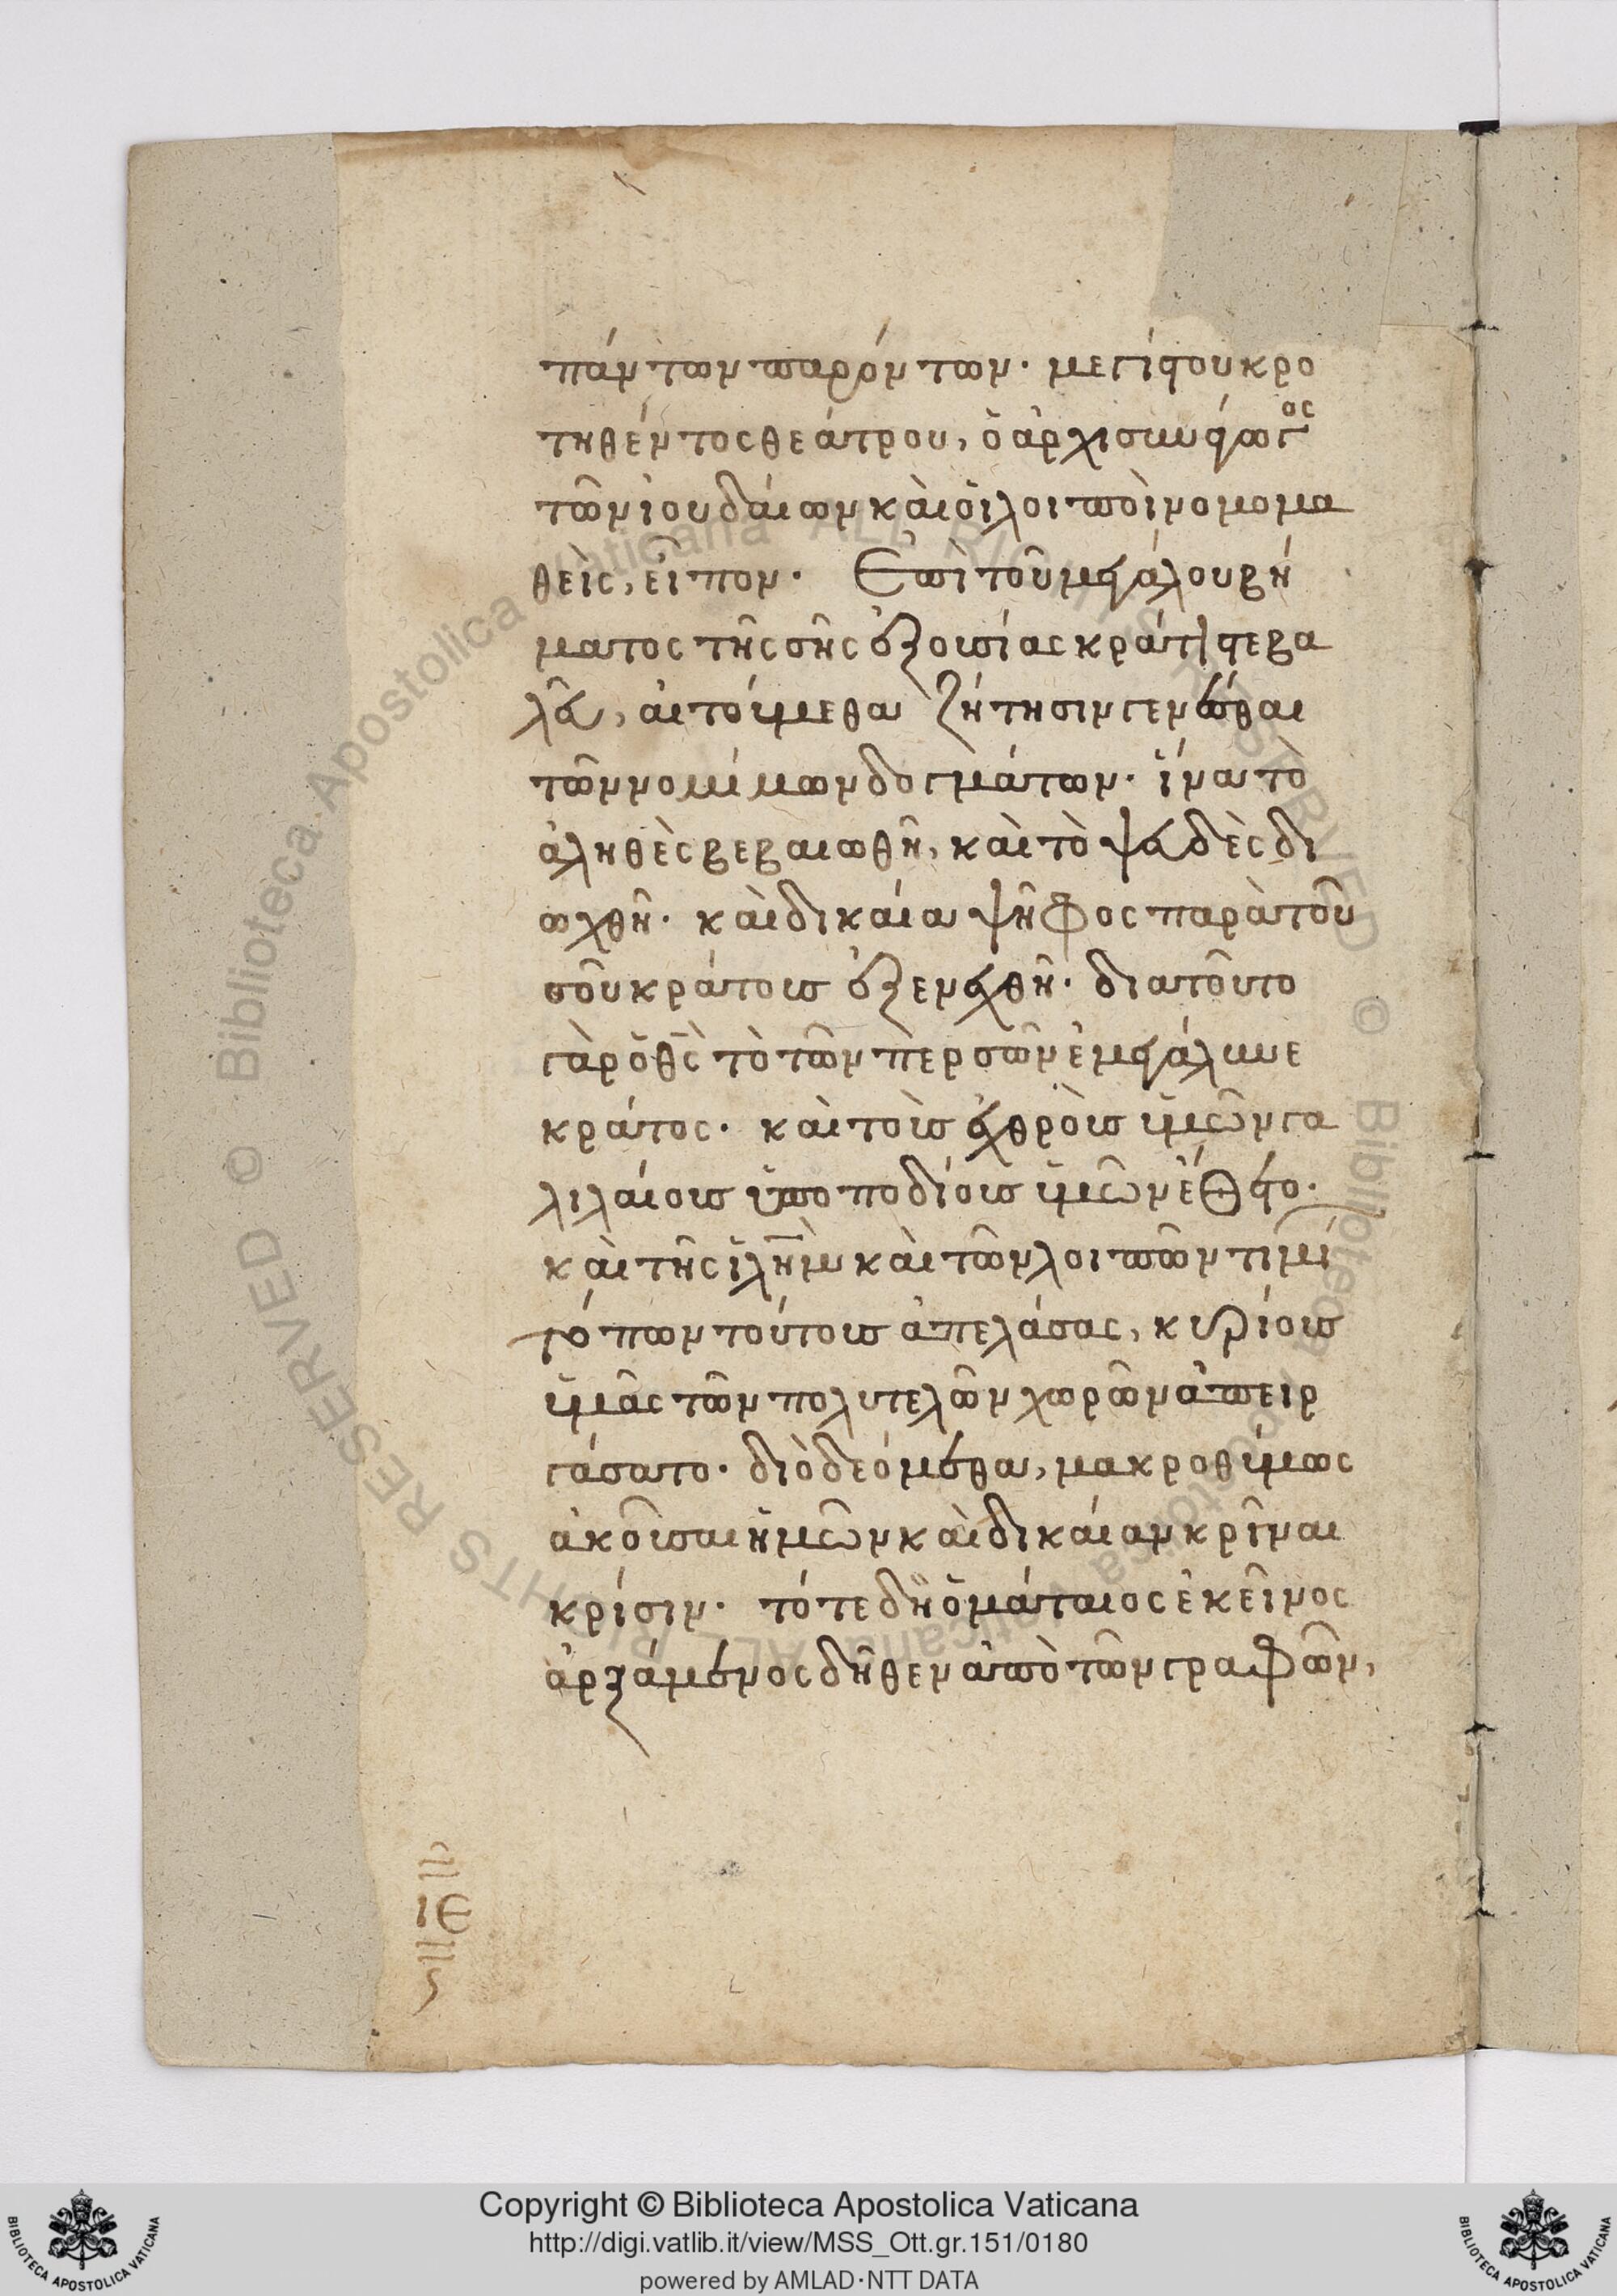 πάντων παρόντων· μεγίστου κρο
τηθέντος θεάτρου, ὁ ἀρχισυνάγωγος
τῶν ἰουδαίων καὶ οἱ λοιποὶ νομομα
θεῖς, εἶπον· Ἐπὶ τοῦ μεγάλου βή
ματος τῆς σῆς ἐξουσίας κράτιστε βα
λεῦ, αἰτούμεθα ζήτησιν γενέσθαι
τῶν νομίμων δογμάτων· ἵνα τὸ
ἀληθὲς βεβαιωθῆ, καὶ τὸ ψευδὲς δι
ωχθῆ· καὶ δικαία ψῆφος παρὰ τοῦ
σοῦ κράτους ἐξενεχθῆ· διατοῦτο
γὰρ ὁ θς τὸ τῶν περσῶν ἐμεγάλυνε
κράτος· καὶ τοὺς ἐχθροὺς ὑμῶν γα
λιλαίους ὑποποδίους ὑμῶν ἔθετο·
καὶ τῆς ἰλημ καὶ τῶν λοιπῶν τιμί
τόπων τούτους ἀπελάσας, κυρίους
ὑμᾶς τῶν πολυτελῶν χωρῶν ἀπειρ
γάσατο· διὸ δεόμεσθα, μακροθύμως
ἀκοῦσαι ἡμῶν καὶ δικαίαν κρῖναι
κρίσιν· τότε δὴ ὁ μάταιος ἐκεῖνος
ἀρξάμενος δῆθεν ἀπὸ τῶν γραφῶν,
ιε
Copyright © Biblioteca Apostolica Vaticana
http://digi.vatlib.it/view/MSS_Ott.gr.151/0180
powered by AMLAD·NTT DATA
BIBLIOTECA APOSTOLICA VATICANA
BIBLIOTECA APOSTOLICA VATICANA
© Biblioteca Apostolica Vaticana ALL RIGHTS RESERVED
© Biblioteca Apostolica Vaticana ALL RIGHTS RESERVED